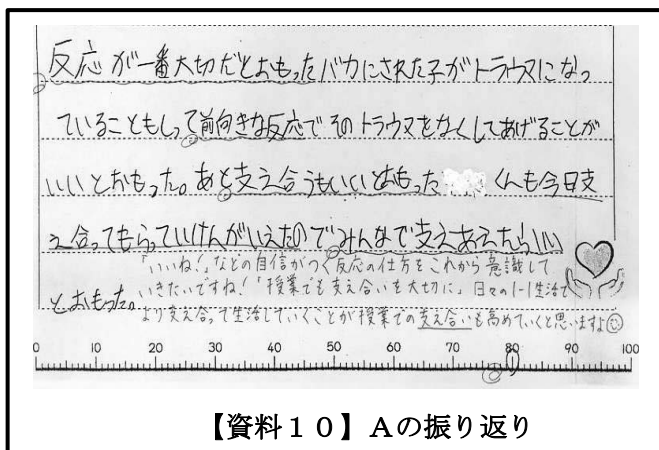 反応が一番大切だとおもったバカにされた子がトラウマになっ
ていることもしって前向きな反応でそのトラウマをなくしてあげることが
いいとおもった。あと支え合うもいいとおもった くんも今日支
え合ってもらっていけんがいえたのでみんなで支えあえたらいい
とおもった。
「いいね!」などの自信がつく反応の仕方をこれから意識して
いきたいですね!「授業でも支え合いを大切に」日々の1-1生活で
より支え合って生活していくことが授業での支え合いも高めていくと思いますよ☺
0 10 20 30 40 50 60 70 80 90 100
【資料10】Aの振り返り